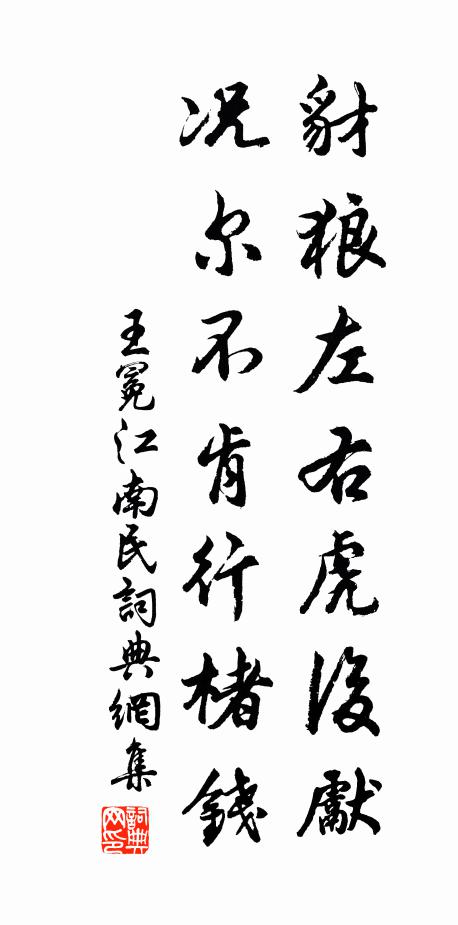 豺狼左右虎後獻
况尔不肯行楮錢
王冕江南民詞典網集
詞典网印